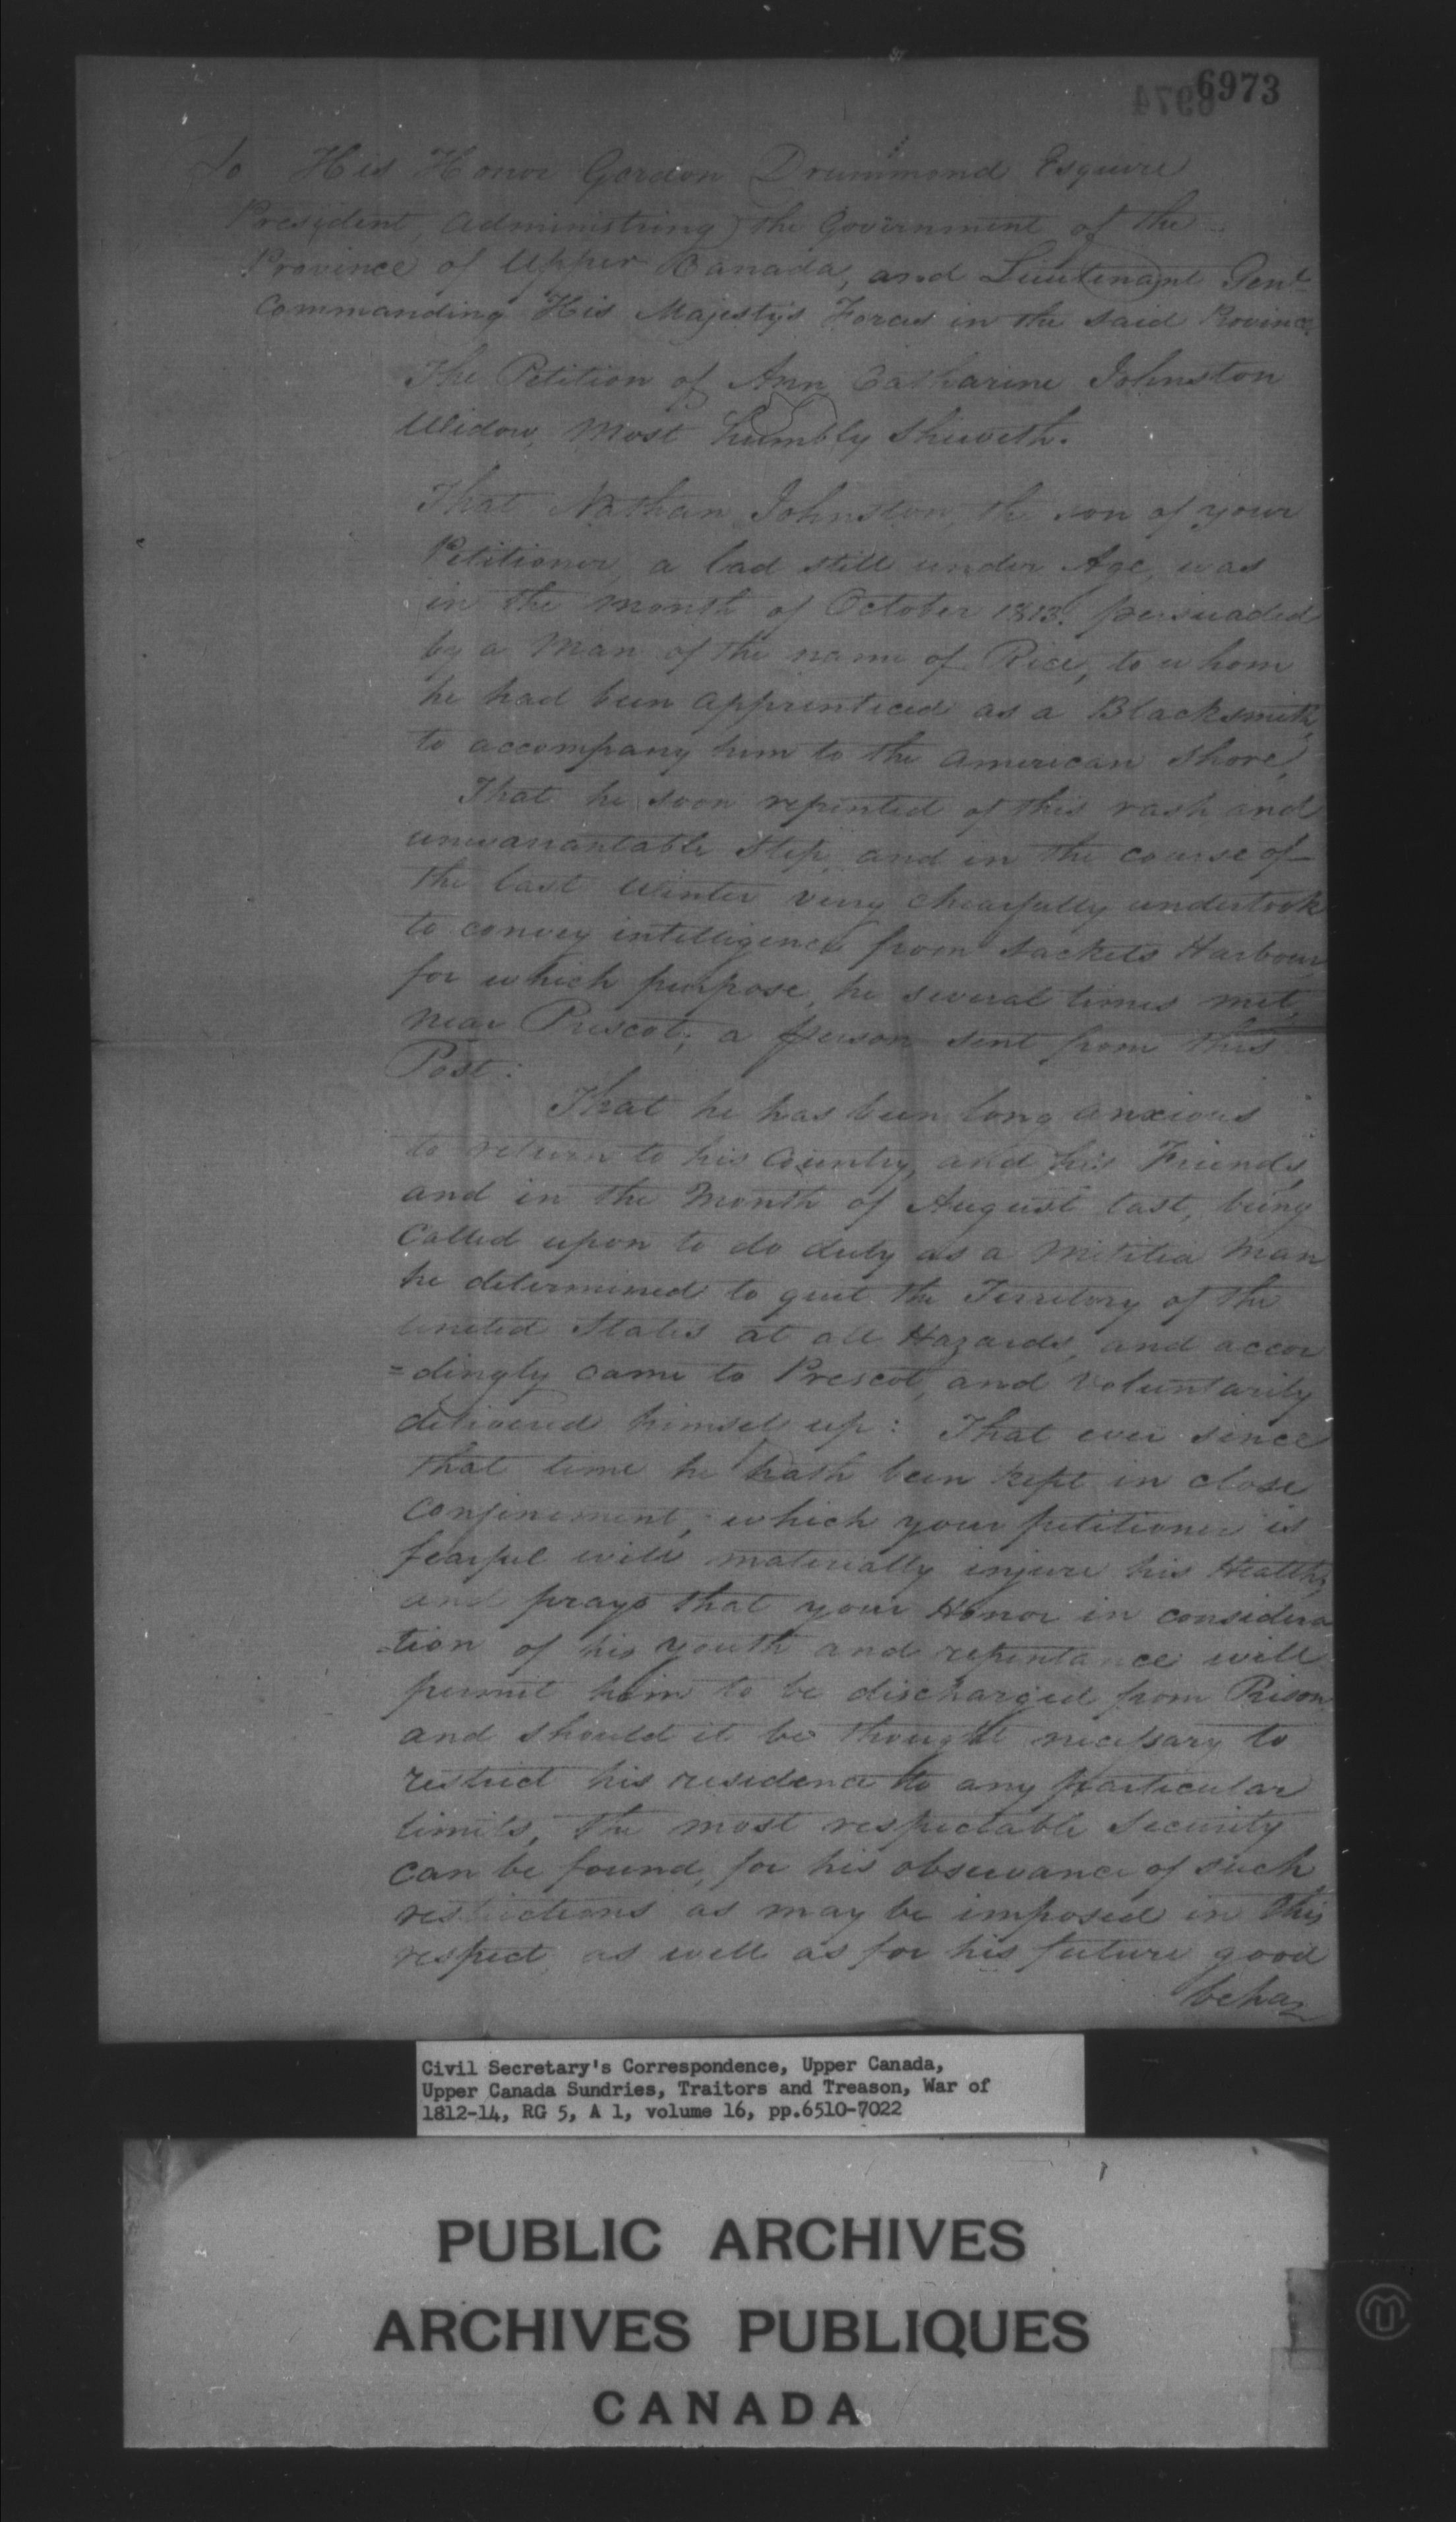 6973
6974
To His Honor Gordon Drummond Esquire
President, administring the Government of the
Province of Upper Canada, and Lieutenant Genl
Commanding His Majestys Forces in the said Province
The Petition of Ann Catharine Johnston
Widow, Most humbly Sheweth.
That Nathan Johnston, the son of your
Petitioner, a lad still under Age, was
in the month of October 1813. persuaded
by a Man of the name of Rice, to whom
he had been apprenticed as a Blacksmith,
to accompany him to the American Shore,
That he soon repented of this rash and
unwarrantable Step, and in the course of
the last Winter very chearfully undertook
to convey intelligence from Sackets Harbour
for which purpose, he several times met,
near Prescot, a person sent from this
Post:
That he has been long anxious
to return to his Country, and his Friends,
and in the Month of August last, being
Called upon to do duty as a Militia Man
he determined to quit the Territory of the
United States at all Hazards, and accor
=dingly came to Prescot, and Voluntarily
delivered himself up: That ever since
that time he hath been kept in close
Confinement, which your petitioner is
fearful will materially injure his Health,
and prays that your Honor in considera
-tion of his youth and repentance will
permit him to be discharged from Prison
and should it be thought necessary to
restrict his residence to any particular
limits, the most respectable Security
can be found, for his observance of such
restrictions as may be imposed in this
respect, as well as for his future good
behav
Civil Secretary's Correspondence, Upper Canada,
Upper Canada Sundries, Traitors and Treason, War of
1812-14, RG 5, A 1, volume 16, pp.6510-7022
PUBLIC ARCHIVES
ARCHIVES PUBLIQUES
CANADA